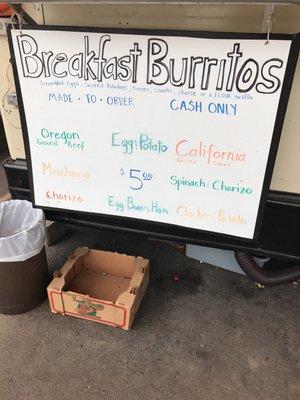 Breakfast Burritos
Scrambled Eggs, Sautéed Potatoes, Onions, Cilantro, cheese in a FLOUR tortilla
MADE · TO · ORDER
CASH ONLY
Oregon
Ground Beef
Egg & Potato
California
Grilled Steak
Machaca
$5.00
Spinach & Chorizo
Chorizo
Egg Bacon Ham
Chicken & Potato